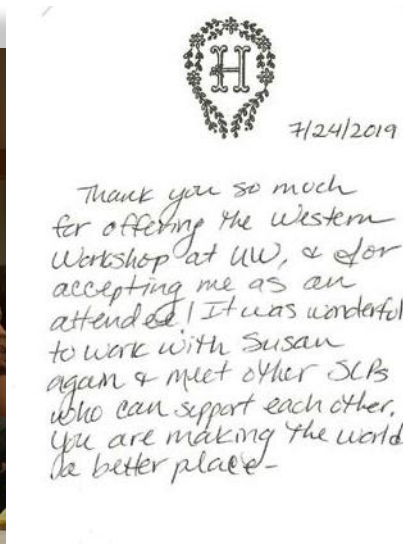 H
7/24/2019
Thank you so much
for offering the Western
Workshop at UW, & for
accepting me as an
attendee! It was wonderful
to work with Susan
again & meet other SLPs
who can support each other.
You are making the world
a better place-